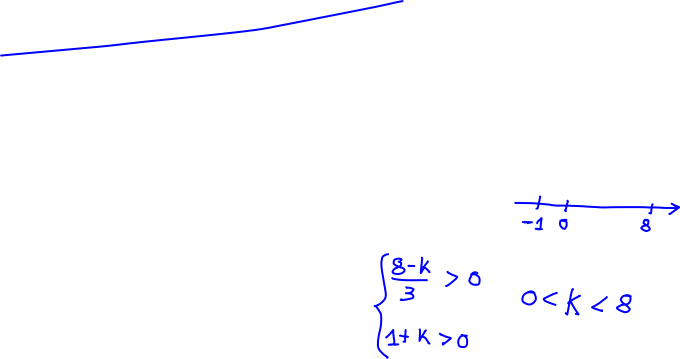 -1 0 8
8-k
3 > 0
1+k>0
0<k<8